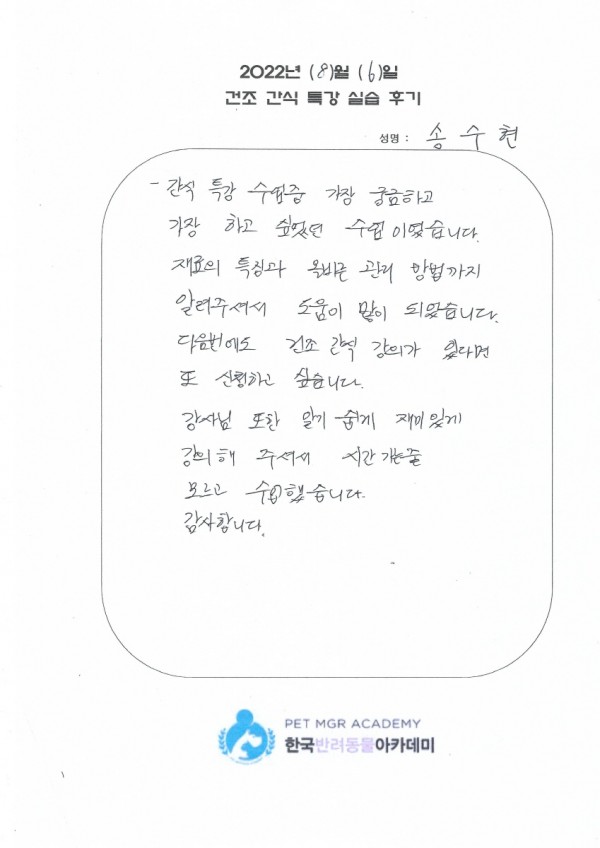 2022년 (8)월 (6)일
건조 간식 특강 실습 후기
성명 : 송수현
- 간식 특강 수업중 가장 궁금하고
가장 하고 싶었던 수업이었습니다.
재료의 특징과 올바른 관리 방법까지
알려주셔서 도움이 많이 되었습니다.
다음번에도 건조 간식 강의가 있다면
또 신청하고 싶습니다.
강사님 또한 알기 쉽게 재미있게
강의해 주셔서 시간 가는줄
모르고 수업했습니다.
감사합니다.
PET MGR ACADEMY
한국반려동물아카데미